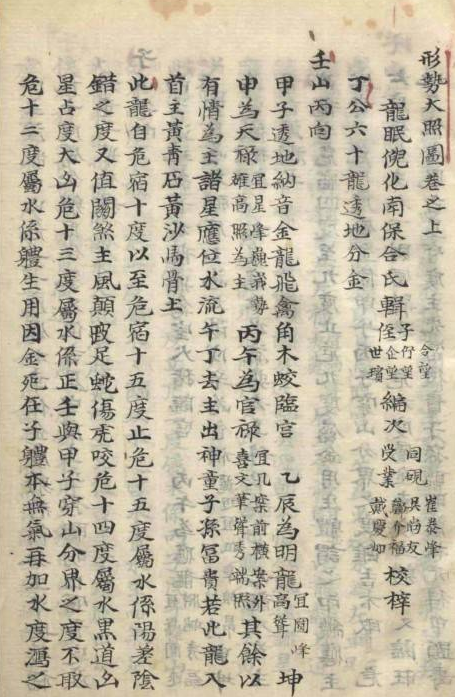 形勢大照圖卷之上
龍眠倪化南保合氏輯 子 侄 仔望 企望 世璸 編次 同硯 受業 崔泰峰 戴慶 校梓
丁公六十龍透地分金
壬山丙向
甲子透地納音金龍飛禽角木蛟臨宮 乙辰為明龍 宜圓峰高聳 坤
申為天祿 宜星峰巍峩勢雄高照為主 丙午為官祿 宜几案前橫案外喜文筆聳秀端照 其餘以
有情為主諸星應位水流午丁去主出神童子孫冨貴若此龍入
首主黃青石黃沙馬骨土
此龍自危宿十度以至危宿十五度止危十五度屬水係陽差陰
錯之度又值闕煞主風顛跛足蛇傷虎咬危十四度屬水黑道凶
星占度大凶危十三度屬水係正壬與甲子穿山分界之度不取
危十二度屬水係體生用因金死在子體本無氣再加水度瀉之